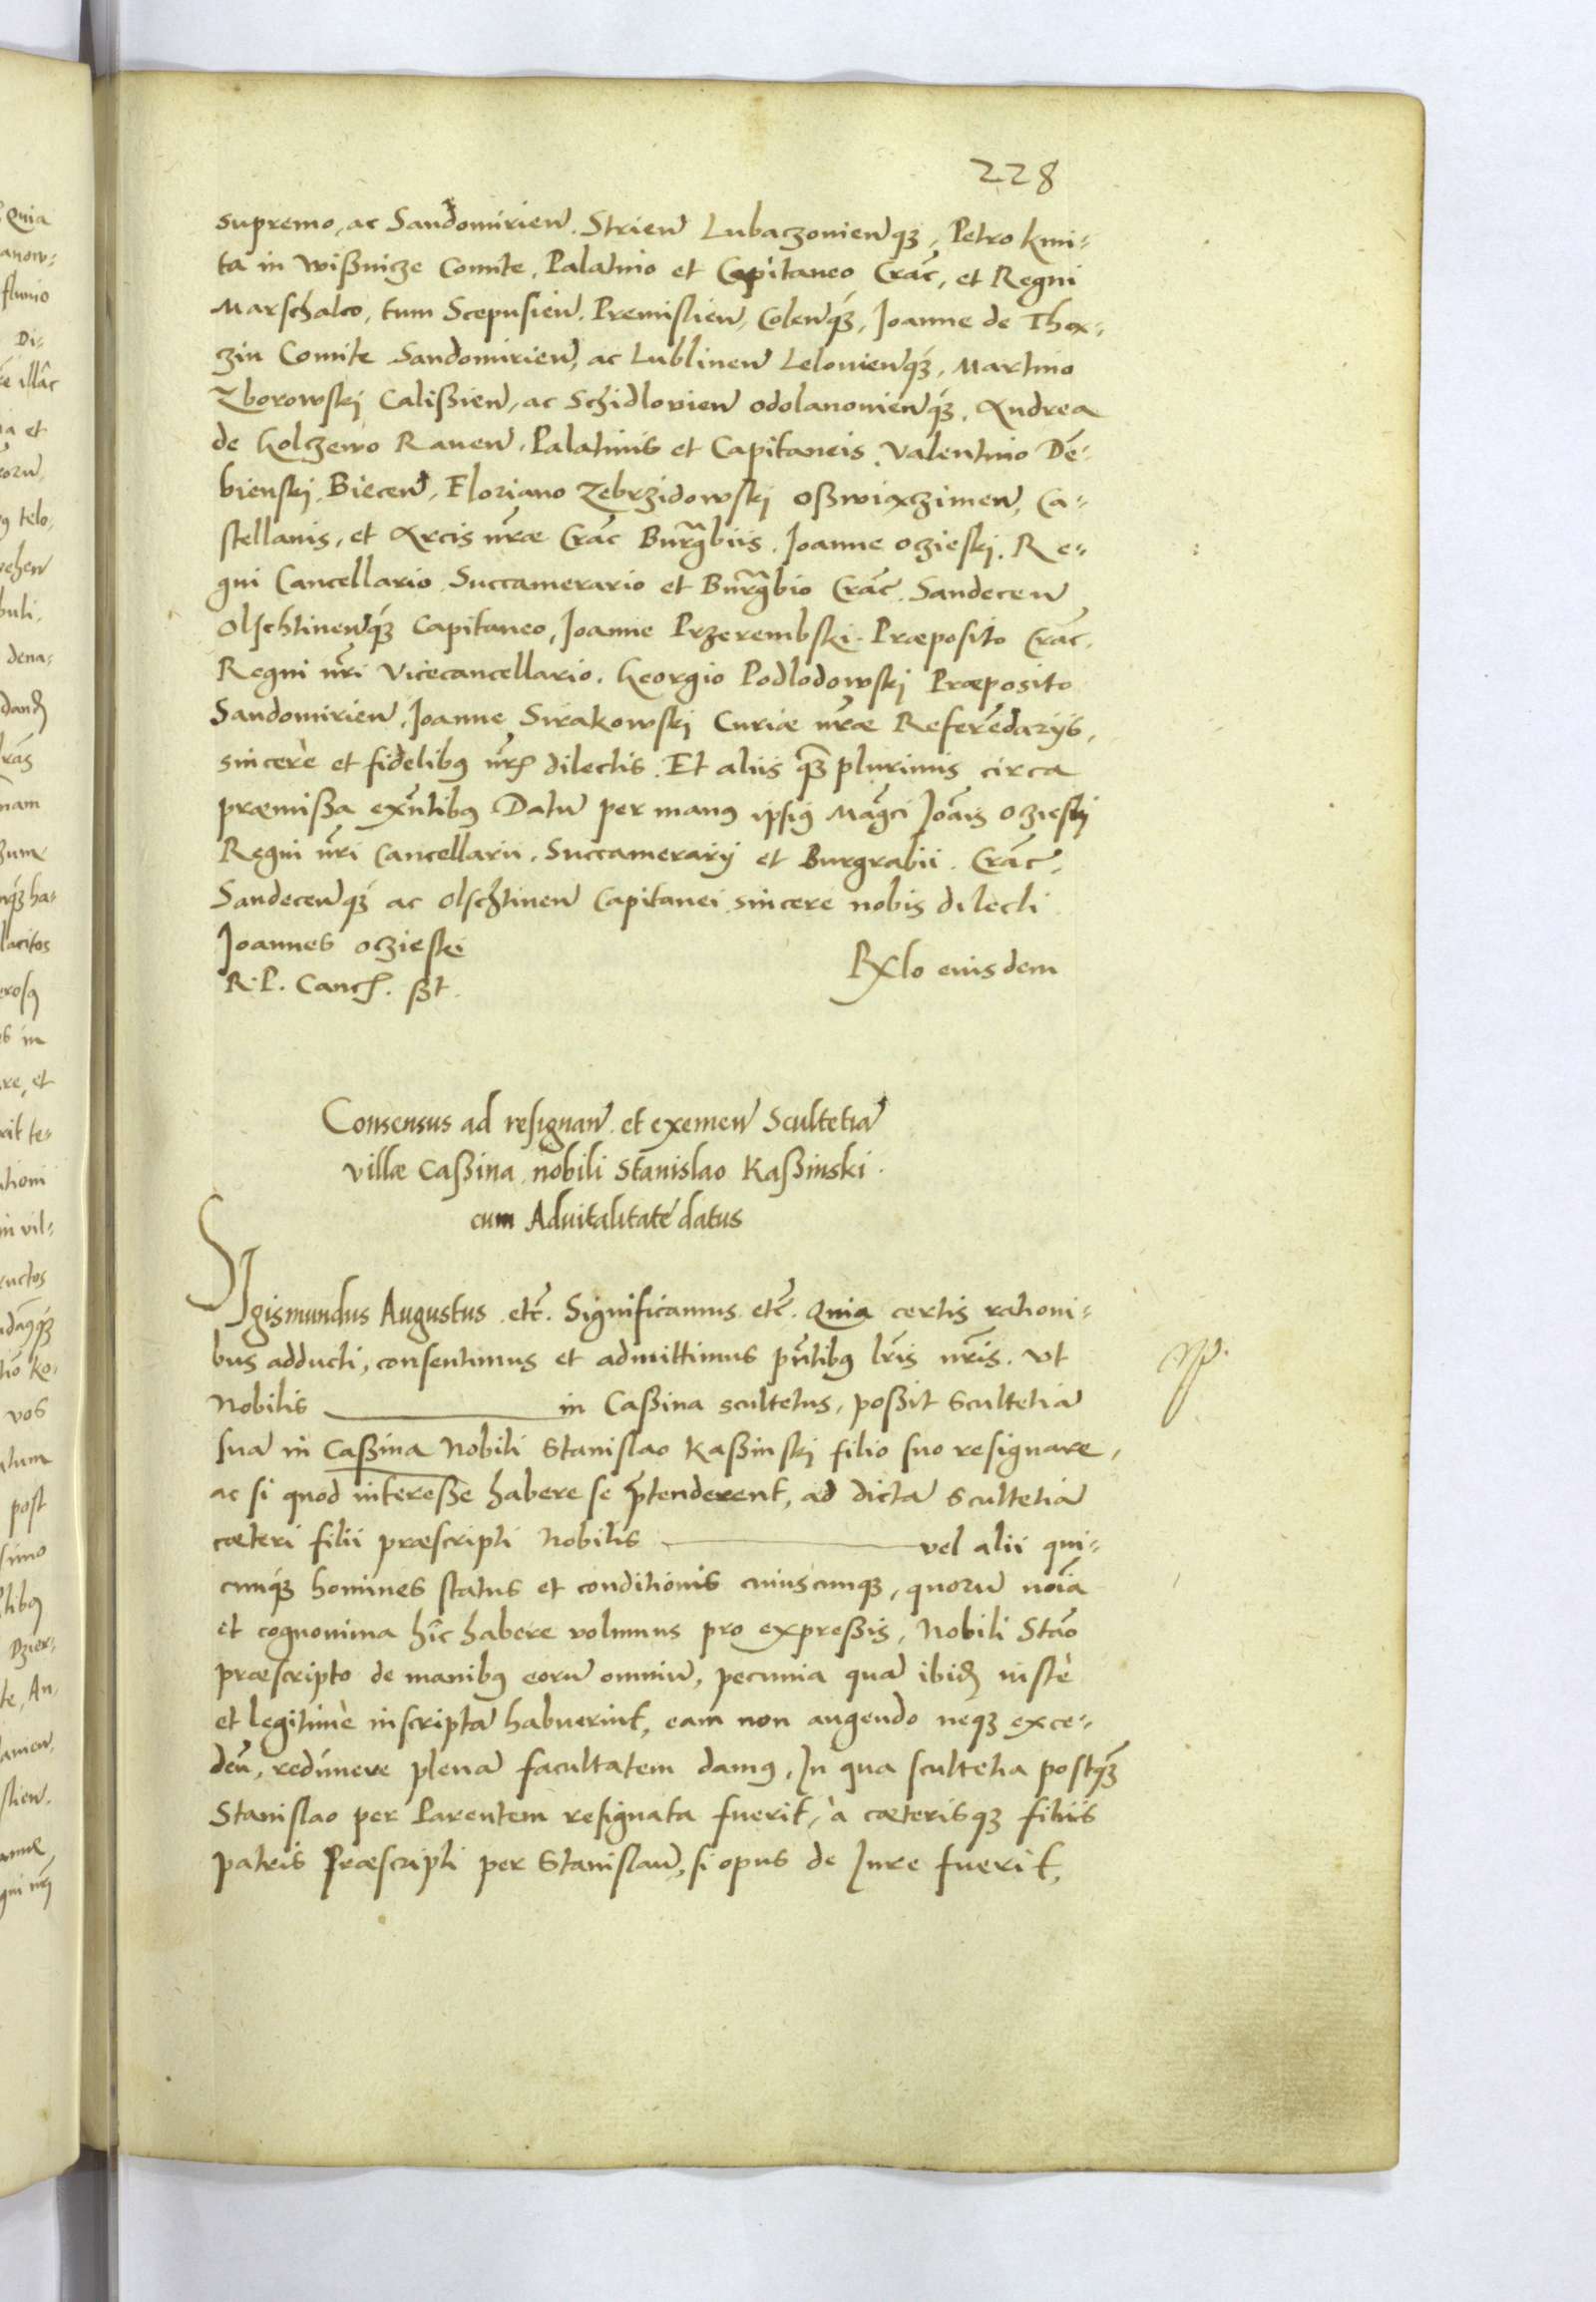 228
supremo, ac Sandomirien. Strien Lubaczovienq3, Petro Kmi-
ta in Wißnicze Comite, Palatino et Capitaneo Crac̃, et Regni
Marschalco, tum Scepusien. Premislien, Colenq3, Joanne de Than-
czin Comite Sandomirien, ac Lublinen Lelovienq3, Martino
Zborowskj Calißien, ac Schidlovien Odolanovienq3, Andrea
de Kolczewo Raven. Palatinis et Capitaneis, Valentino Dẽ-
bienskj Biecen, Floriano Zebrzidowskj Oßwiączimen, Ca-
stellanis, et Arcis nr̃ae Crac̃ Burgr̃biis, Joanne Oczieskj, Re-
gni Cancellario Succamerario et Burgr̃bio Crac̃. Sandecen
Olschtinenq3 Capitaneo, Joanne Przerembski. Præposito Crac̃.
Regni nr̃i Vicecancellario. Georgio Podlodowskj Præposito
Sandomirien, Joanne Sirakowskj Curiæ nr̃æ Referẽdarijs,
sincerè et fidelibus nr̃is dilectis. Et aliis q̃ plurimis circa
præmißa exñtibus Datũ per manus ipsius Mag̃ci Joãis Oczieskj
Regni nr̃i Cancellarii, Succamerarij et Burgrabii. Crac̃.
Sandecenq3 ac Olschtinen Capitanei sincerè nobis dilecti
Joannes Oczieski
R. P. Canc. ßt.
Relo eiusdem
Consensus ad resignan̄ et exemen̄ Scultetiã
villæ Caßina, nobili Stanislao Kaßinski.
cum Advitalitatẽ datus
SIgismundus Augustus etc̃. Significamus etc̃. Quia certis rationi-
bus adducti, consentimus et admittimus pñtibus lr̃is nr̃is. Vt
Nobilis in Caßina scultetus, poßit Scultetiã
suã in Caßina Nobili Stanislao Kaßinskj filio suo resignare,
ac si quod intereße habere se p̃tenderent, ad dictã Scultetiã
cæteri filii præscripti Nobilis vel alii qui-
cunq3 homines status et conditionis cuiuscunq3, quorũ noĩa
et cognomina hîc habere volumus pro expreßis, Nobili Stão
præscripto de manibus eorũ omniũ, pecunia quã ibid̃ iustè
et legitimè inscriptã habuerint, eam non augendo neq3 exce-
deñ, redimere plenã facultatem damus, In qua scultetia postq̃
Stanislao per Parentem resignata fuerit, à cæterisq3 filiis
patris Præscripti per Stanislaũ, si opus de Iure fuerit,